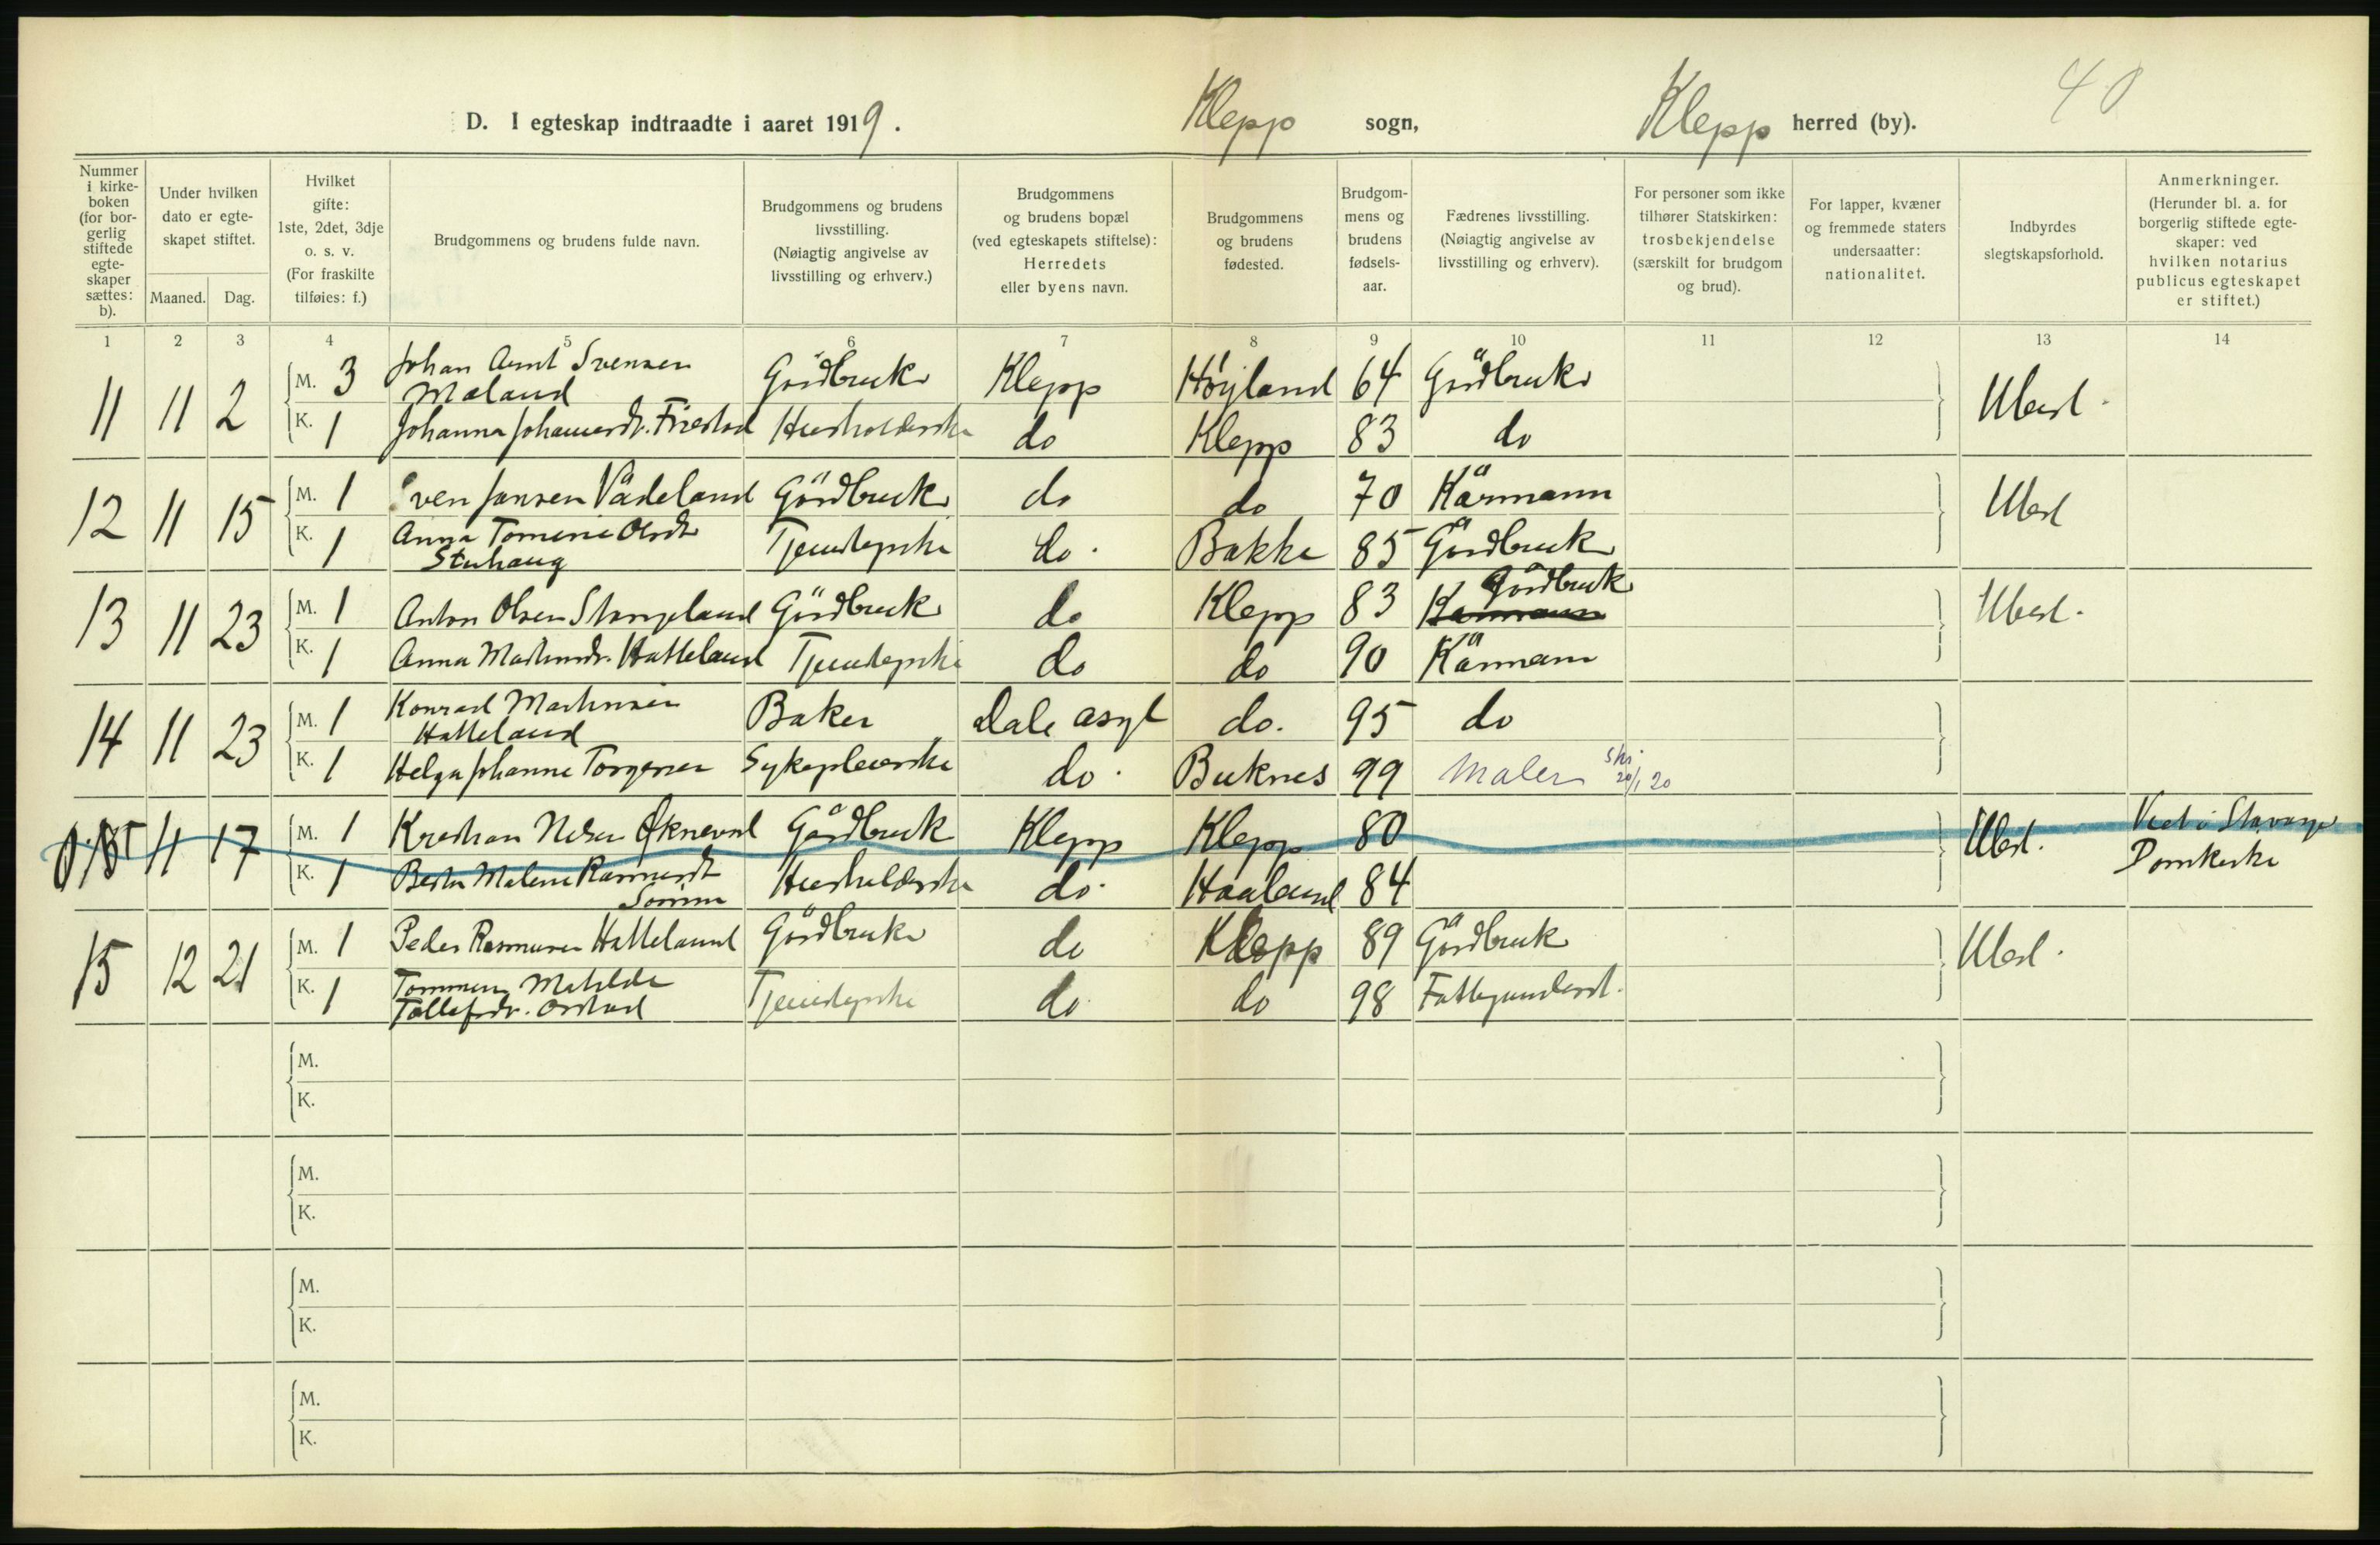 40
D. I egteskap indtraadte i aaret 1919. Klepp sogn, Klepp herred (by).
Nummer i kirke-boken (for bor-gerlig stiftede egte-skaper sættes: b).
Under hvilken dato er egte-skapet stiftet.
Maaned. Dag.
Hvilket gifte: 1ste, 2det, 3dje o. s. v. (For fraskilte tilføies: f.)
Brudgommens og brudens fulde navn.
Brudgommens og brudens livsstilling. (Nøiagtig angivelse av livsstilling og erhverv.)
Brudgommens og brudens bopæl (ved egteskapets stiftelse): Herredets eller byens navn.
Brudgommens og brudens fødested.
Brudgom-mens og brudens fødsels-aar.
Fædrenes livsstilling. (Nøiagtig angivelse av livsstilling og erhverv).
For personer som ikke tilhører Statskirken: trosbekjendelse (særskilt for brudgom og brud).
For lapper, kvæner og fremmede staters undersaatter: nationalitet.
Indbyrdes slegtskapsforhold.
Anmerkninger. (Herunder bl. a. for borgerlig stiftede egte-skaper: ved hvilken notarius publicus egteskapet er stiftet.)
1 2 3 4 5 6 7 8 9 10 11 12 13 14
11 11 2 M. 3 Johan Arnt Svensen Maland Gårdbruk Klepp Højland 64 Gårdbruk Ubesl.
K. 1 Johanna Johannesdr. Friestad Husholderske do Klepp 83 do
12 11 15 M. 1 Sven Jansen Vådeland Gårdbruk do do 70 Kårmann Ubesl
K. 1 Anna Tomine Olsdt Stuhaug Tjenestepike do. Bakke 85 Gårdbruk
13 11 23 M. 1 Anton Olsen Stangeland Gårdbruk do Klepp 83 Kårmann Gårdbruk Ubesl.
K. 1 Anna Martinsdr. Hatteland Tjenestepike do do 90 Kårmann
14 11 23 M. 1 Konrad Martinsen Hatteland Baker Dale asyl do. 95 do
K. 1 Helga Johanne Torgersen Sykepleierske do. Buknes 99 Maler 20/1 20
11 17 M. 1 Kristian Nilsen Øksnevad Gårdbruk Klepp Klepp 80 Ubesl. Viet i Stavanger Domkirke
K. 1 Berta Malene Rasmusdt Sømme Husholderske do. Haaland 84
15 12 21 M. 1 Peder Rasmusen Hatteland Gårdbruk do Klepp 89 Gårdbruk Ubesl.
K. 1 Tommine Matilde Tollefsdr. Orstad Tjenestepike do do 98 Fattigunderst.
M.
K.
M.
K.
M.
K.
M.
K.